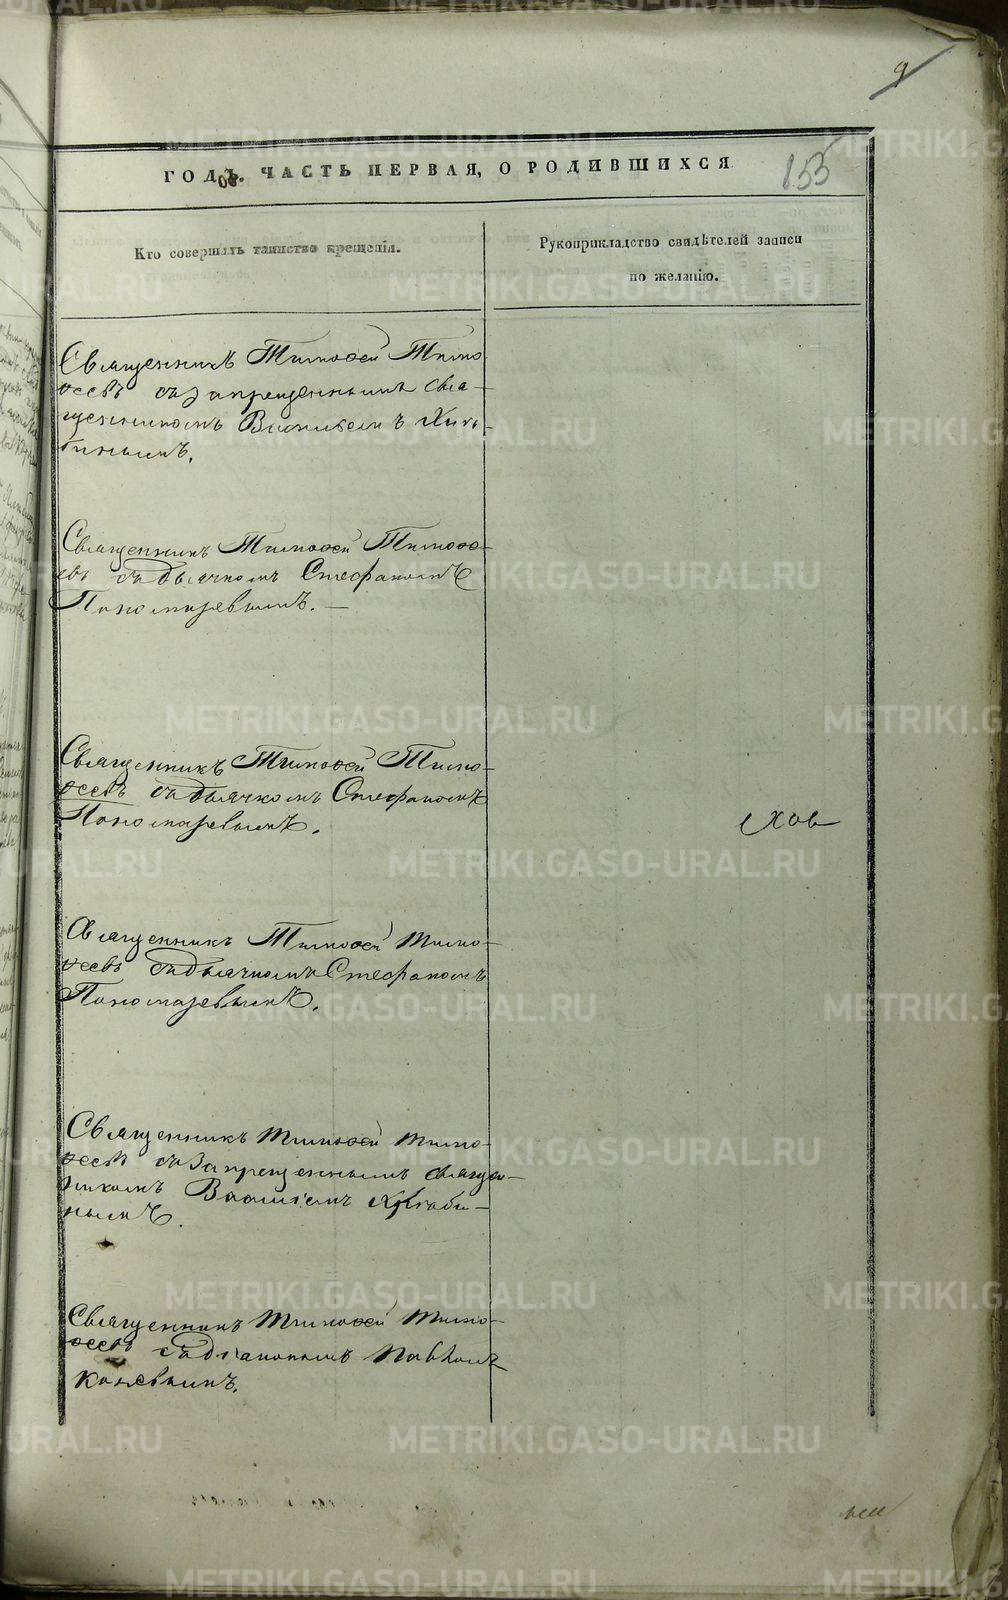 9
ГОДЪ. ЧАСТЬ ПЕРВАЯ, О РОДИВШИХСЯ
155
Кто совершалъ таинство крещенія.
Рукоприкладство свидѣтелей записи
по желанію.
Священникъ Тимоѳей Тимо-
ѳеевъ съ запрещеннымъ свя-
щенникомъ Василіемъ
Священникъ Тимоѳей Тимоѳе-
евъ съ дьячкомъ Стефаномъ
Пономаревымъ. —
Священникъ Тимоѳей Тимо-
ѳеевъ съ дьячкомъ Стефаномъ
Пономаревымъ.
Священникъ Тимоѳей Тимо-
ѳеевъ съ дьячкомъ Стефаномъ
Пономаревымъ.
Священникъ Тимоѳей Тимо-
ѳеевъ съ запрещеннымъ священ-
никомъ Василіемъ
Священникъ Тимоѳей Тимо-
ѳеевъ съ діакономъ Павломъ
Коневымъ.
METRIKI.GASO-URAL.RU